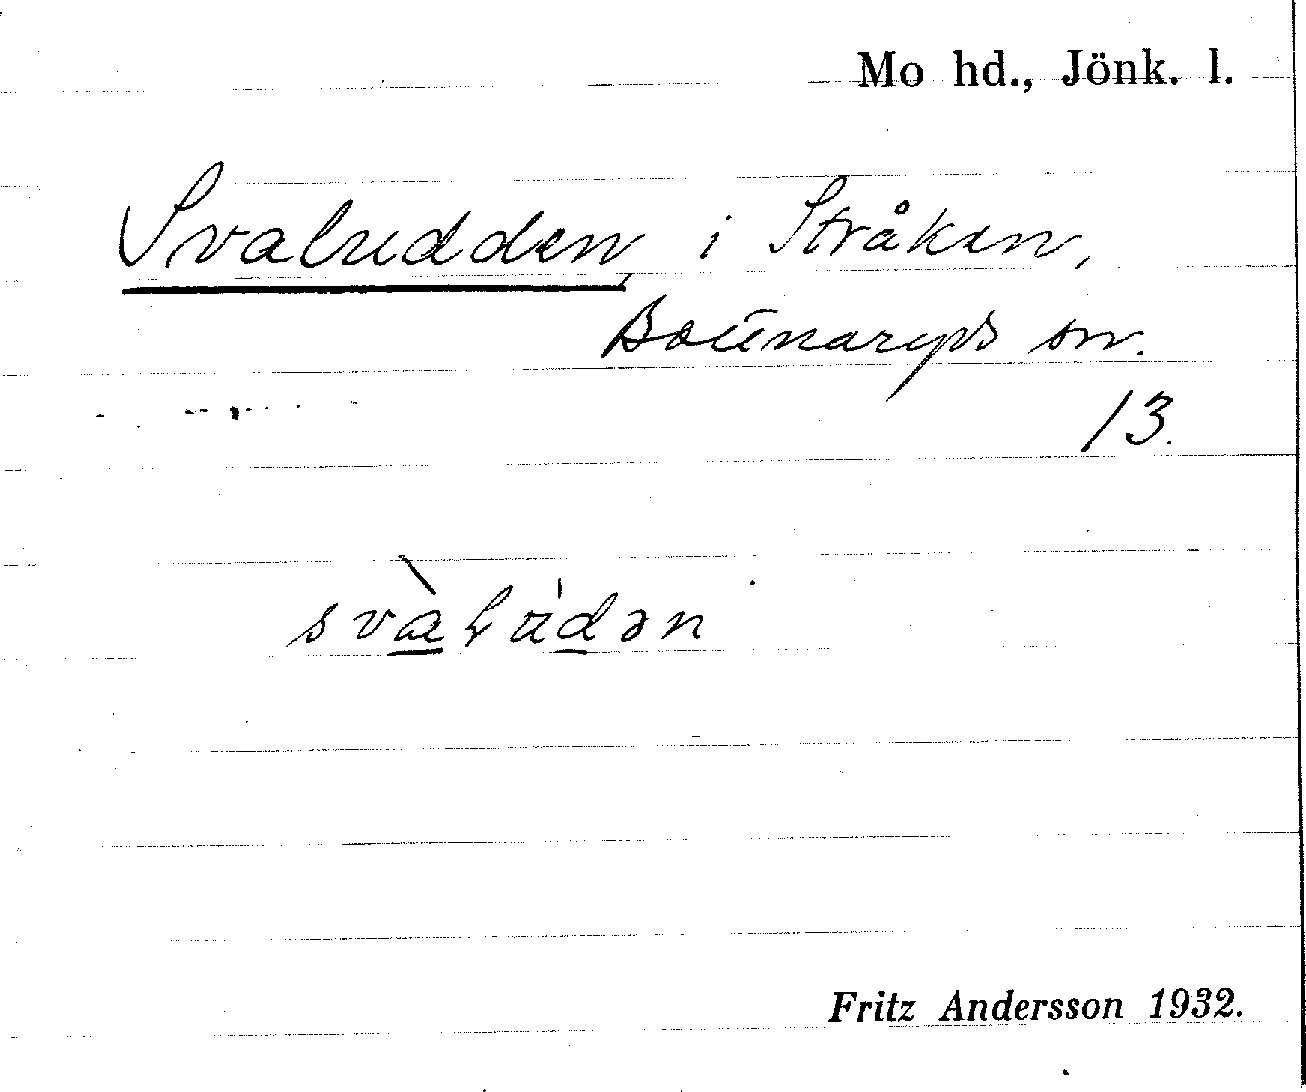 Mo hd., Jönk. l.
Svaludden i Stråken,
Bottnaryds sn.
13.
Fritz Andersson 1932.